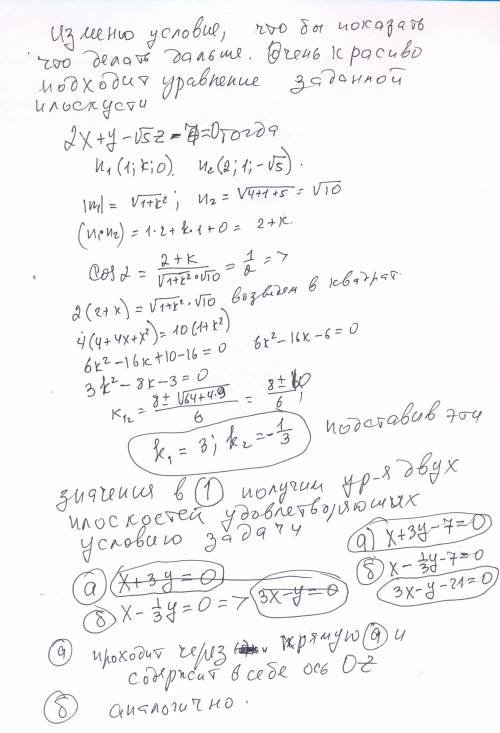 Изменю условие, что бы показать
что делать дальше. Очень красиво
подходит уравнение заданной
плоскусти
2x+y-√5z-7=0, тогда
n₁(1; k; 0). n₂(2; 1; -√5).
|n₁| = √1+k² ; n₂ = √4+1+5 = √10
(n₁·n₂) = 1·2+k·1+0 = 2+k.
Cos2 = 2+k / √1+k²·√10 = 1/2 =>
2(2+k) = √1+k²·√10 возведем в квадрат.
4(4+4x+x²) = 10(1+k²)
6k²-16k+10-16=0 6k²-16k-6=0
3k²-8k-3=0
k₁₂ = 8±√64+4·9 / 6 = 8±10 / 6 ;
k₁=3; k₂=-1/3 подставив эти
значения в ① получим ур-я двух
плоскостей удовлетворяющих
условию задачи
а) x+3y-7=0
б) x-1/3y-7=0
3x-y-21=0
а) x+3y=0
б) x-1/3y=0 => 3x-y=0
а) проходит через прямую а и
содержит в себе ось OZ
б) аналогично.